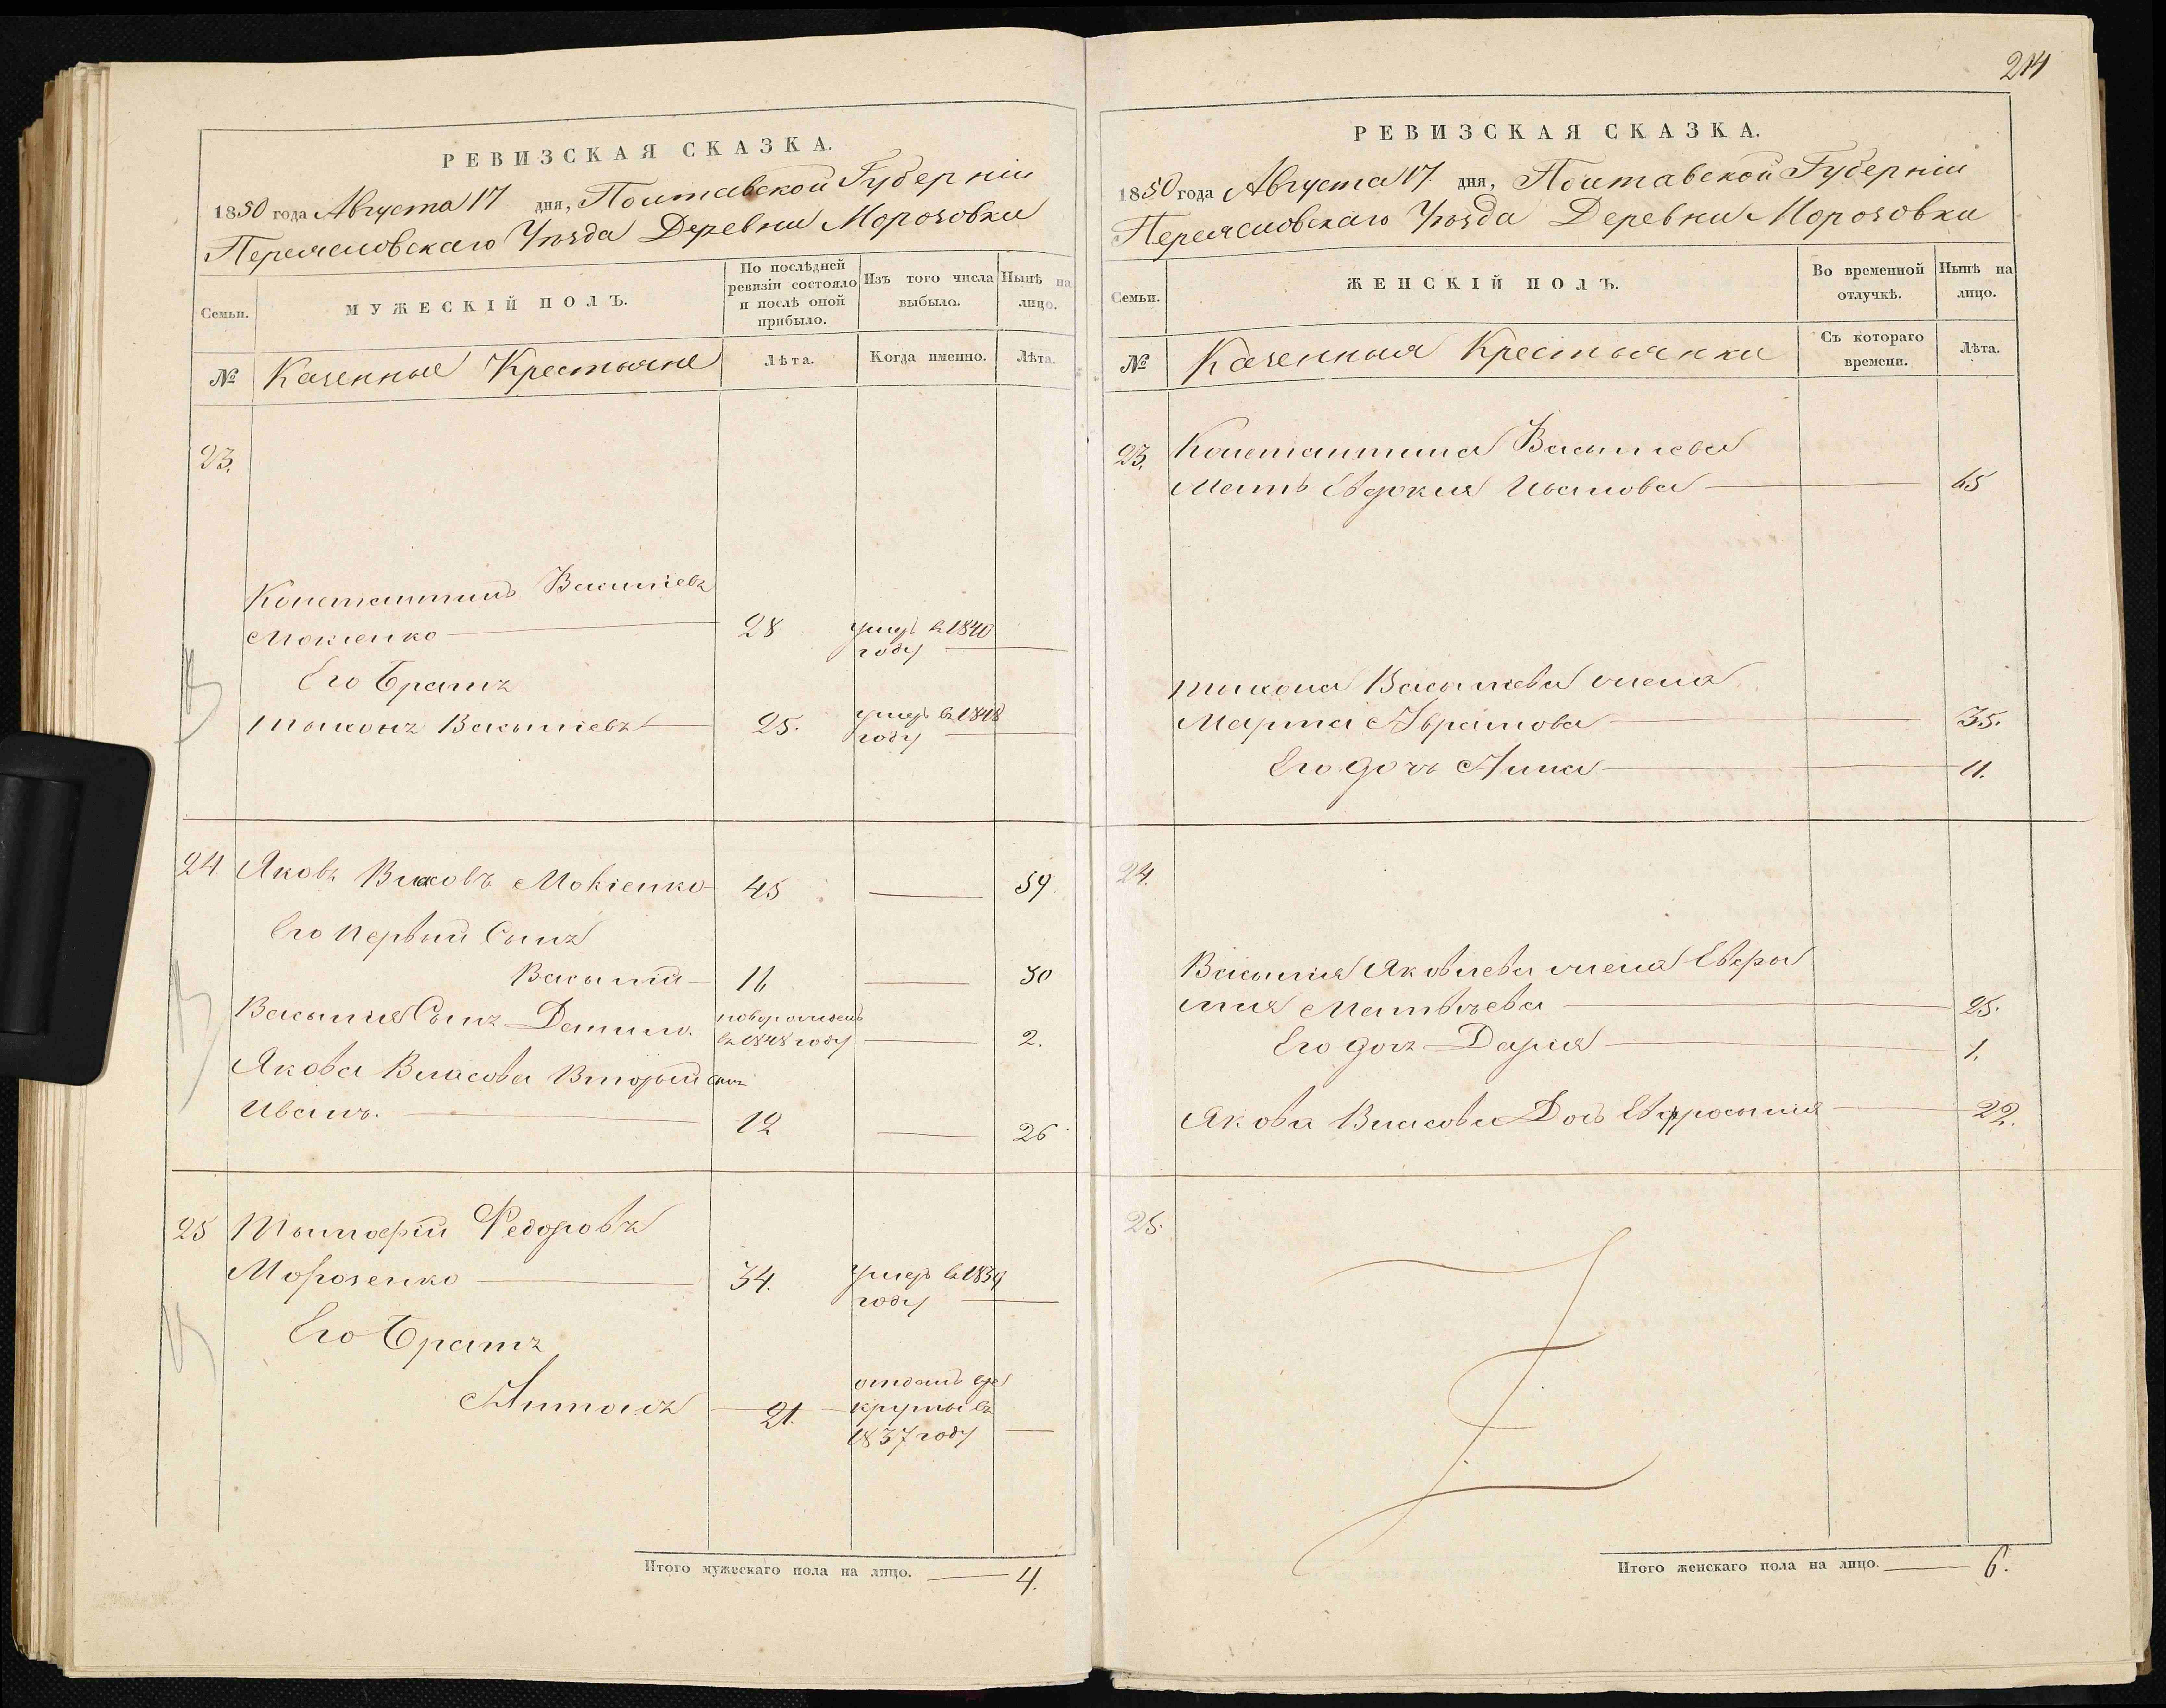 214
РЕВИЗСКАЯ СКАЗКА.
1850 года Августа 17 дня, Полтавской Губерніи
Переяславскаго Уѣзда Деревни Морозовки
Семьи.
МУЖЕСКІЙ ПОЛЪ.
По послѣдней ревизіи состояло и послѣ оной прибыло.
Изъ того числа выбыло.
Нынѣ на лицо.
№
Казенные Крестьяне
Лѣта.
Когда именно.
Лѣта.
23.
Константинъ Василіевъ
Мокіенко 28 умеръ въ 1840
году
Его Братъ
Тыхонъ Васыліевъ 25. умеръ въ 1848
году
24 Яковъ Власовъ Мокіенко 45 59.
Его Первый Сынъ
Васылій 16 30
Васылія Сынъ Данило. новорожденъ
въ 1848 году 2.
Якова Власова Вторый сынъ
Иванъ. 12 26
25 Тымофій Федоровъ
Морозенко 34. умеръ въ 1839
году
Его Братъ
Антонъ 21. отданъ въ ре
круты въ
1837 году
Итого мужескаго пола на лицо. 4.
РЕВИЗСКАЯ СКАЗКА.
1850 года Августа 17 дня, Полтавской Губерніи
Переяславскаго Уѣзда Деревни Морозовки
Семьи.
ЖЕНСКІЙ ПОЛЪ.
Во временной отлучкѣ.
Нынѣ на лицо.
№
Казенныя Крестьянки
Съ котораго времени.
Лѣта.
23. Константина Василіева
Мать Евдокия Иванова 65
Тихона Васыліева жена
Марта Аврамова 35.
Его дочь Анна 11.
24.
Васылия Яковлева жена Евфро
Матвѣева 25.
Его дочъ Дария 1.
Якова Власова Дочь Евфросыния 22.
25.
Итого женскаго пола на лицо. 6.